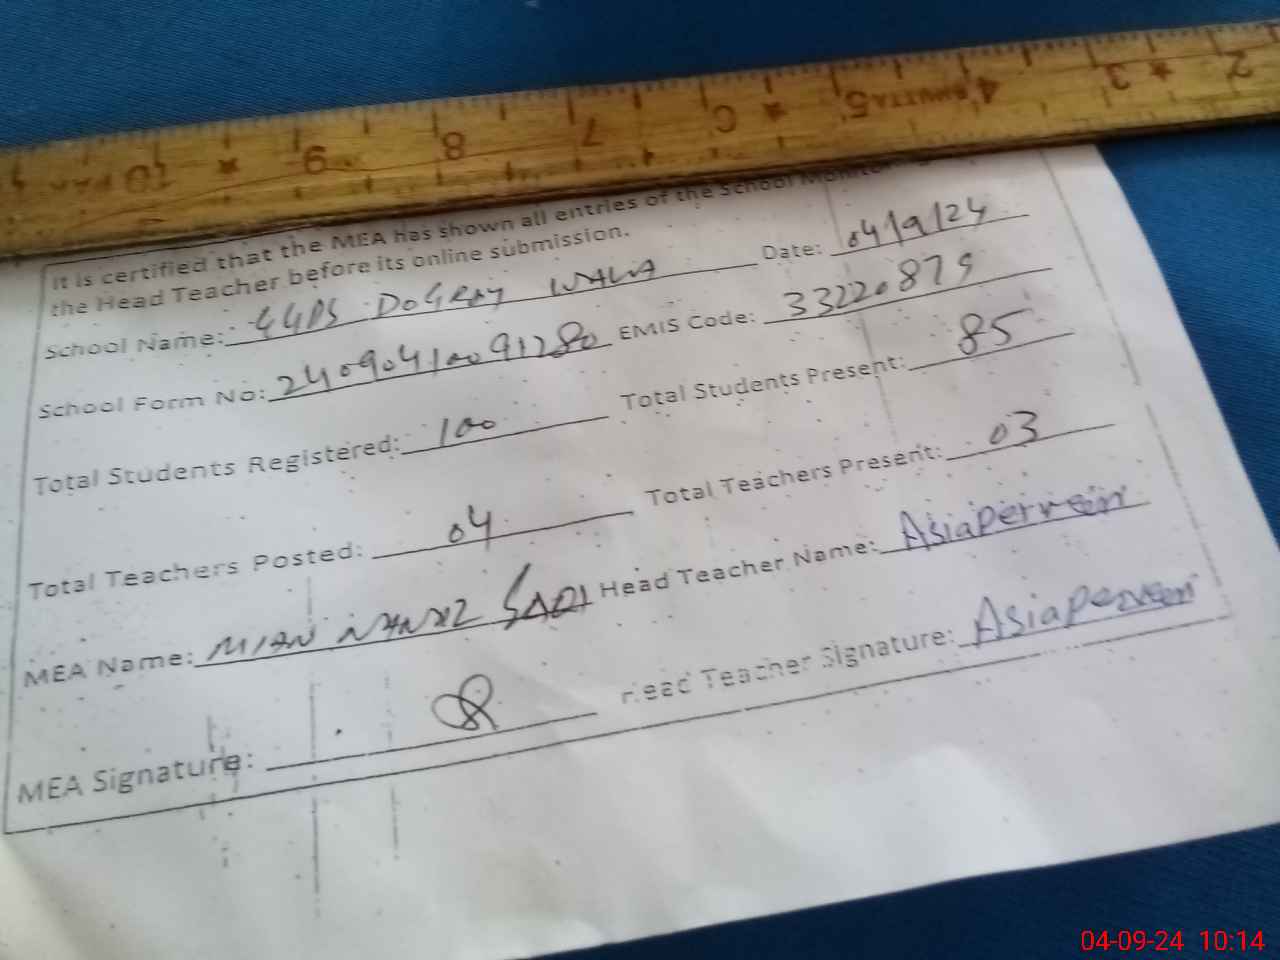 10 9 8 7 5 BHUTTA 4 3 2
It is certified that the MEA has shown all entries of the School
the Head Teacher before its online submission.
School Name: GGPS DOGRAY WALA Date: 04/9/24
School Form No: 24090410091280 EMIS Code: 33220879
Total Students Registered: 100 Total Students Present: 85
Total Teachers Posted: 04 Total Teachers Present: 03
MEA Name: MIAN Head Teacher Name: Asia Perveen
MEA Signature: Head Teacher Signature: Asia Perveen
04-09-24 10:14